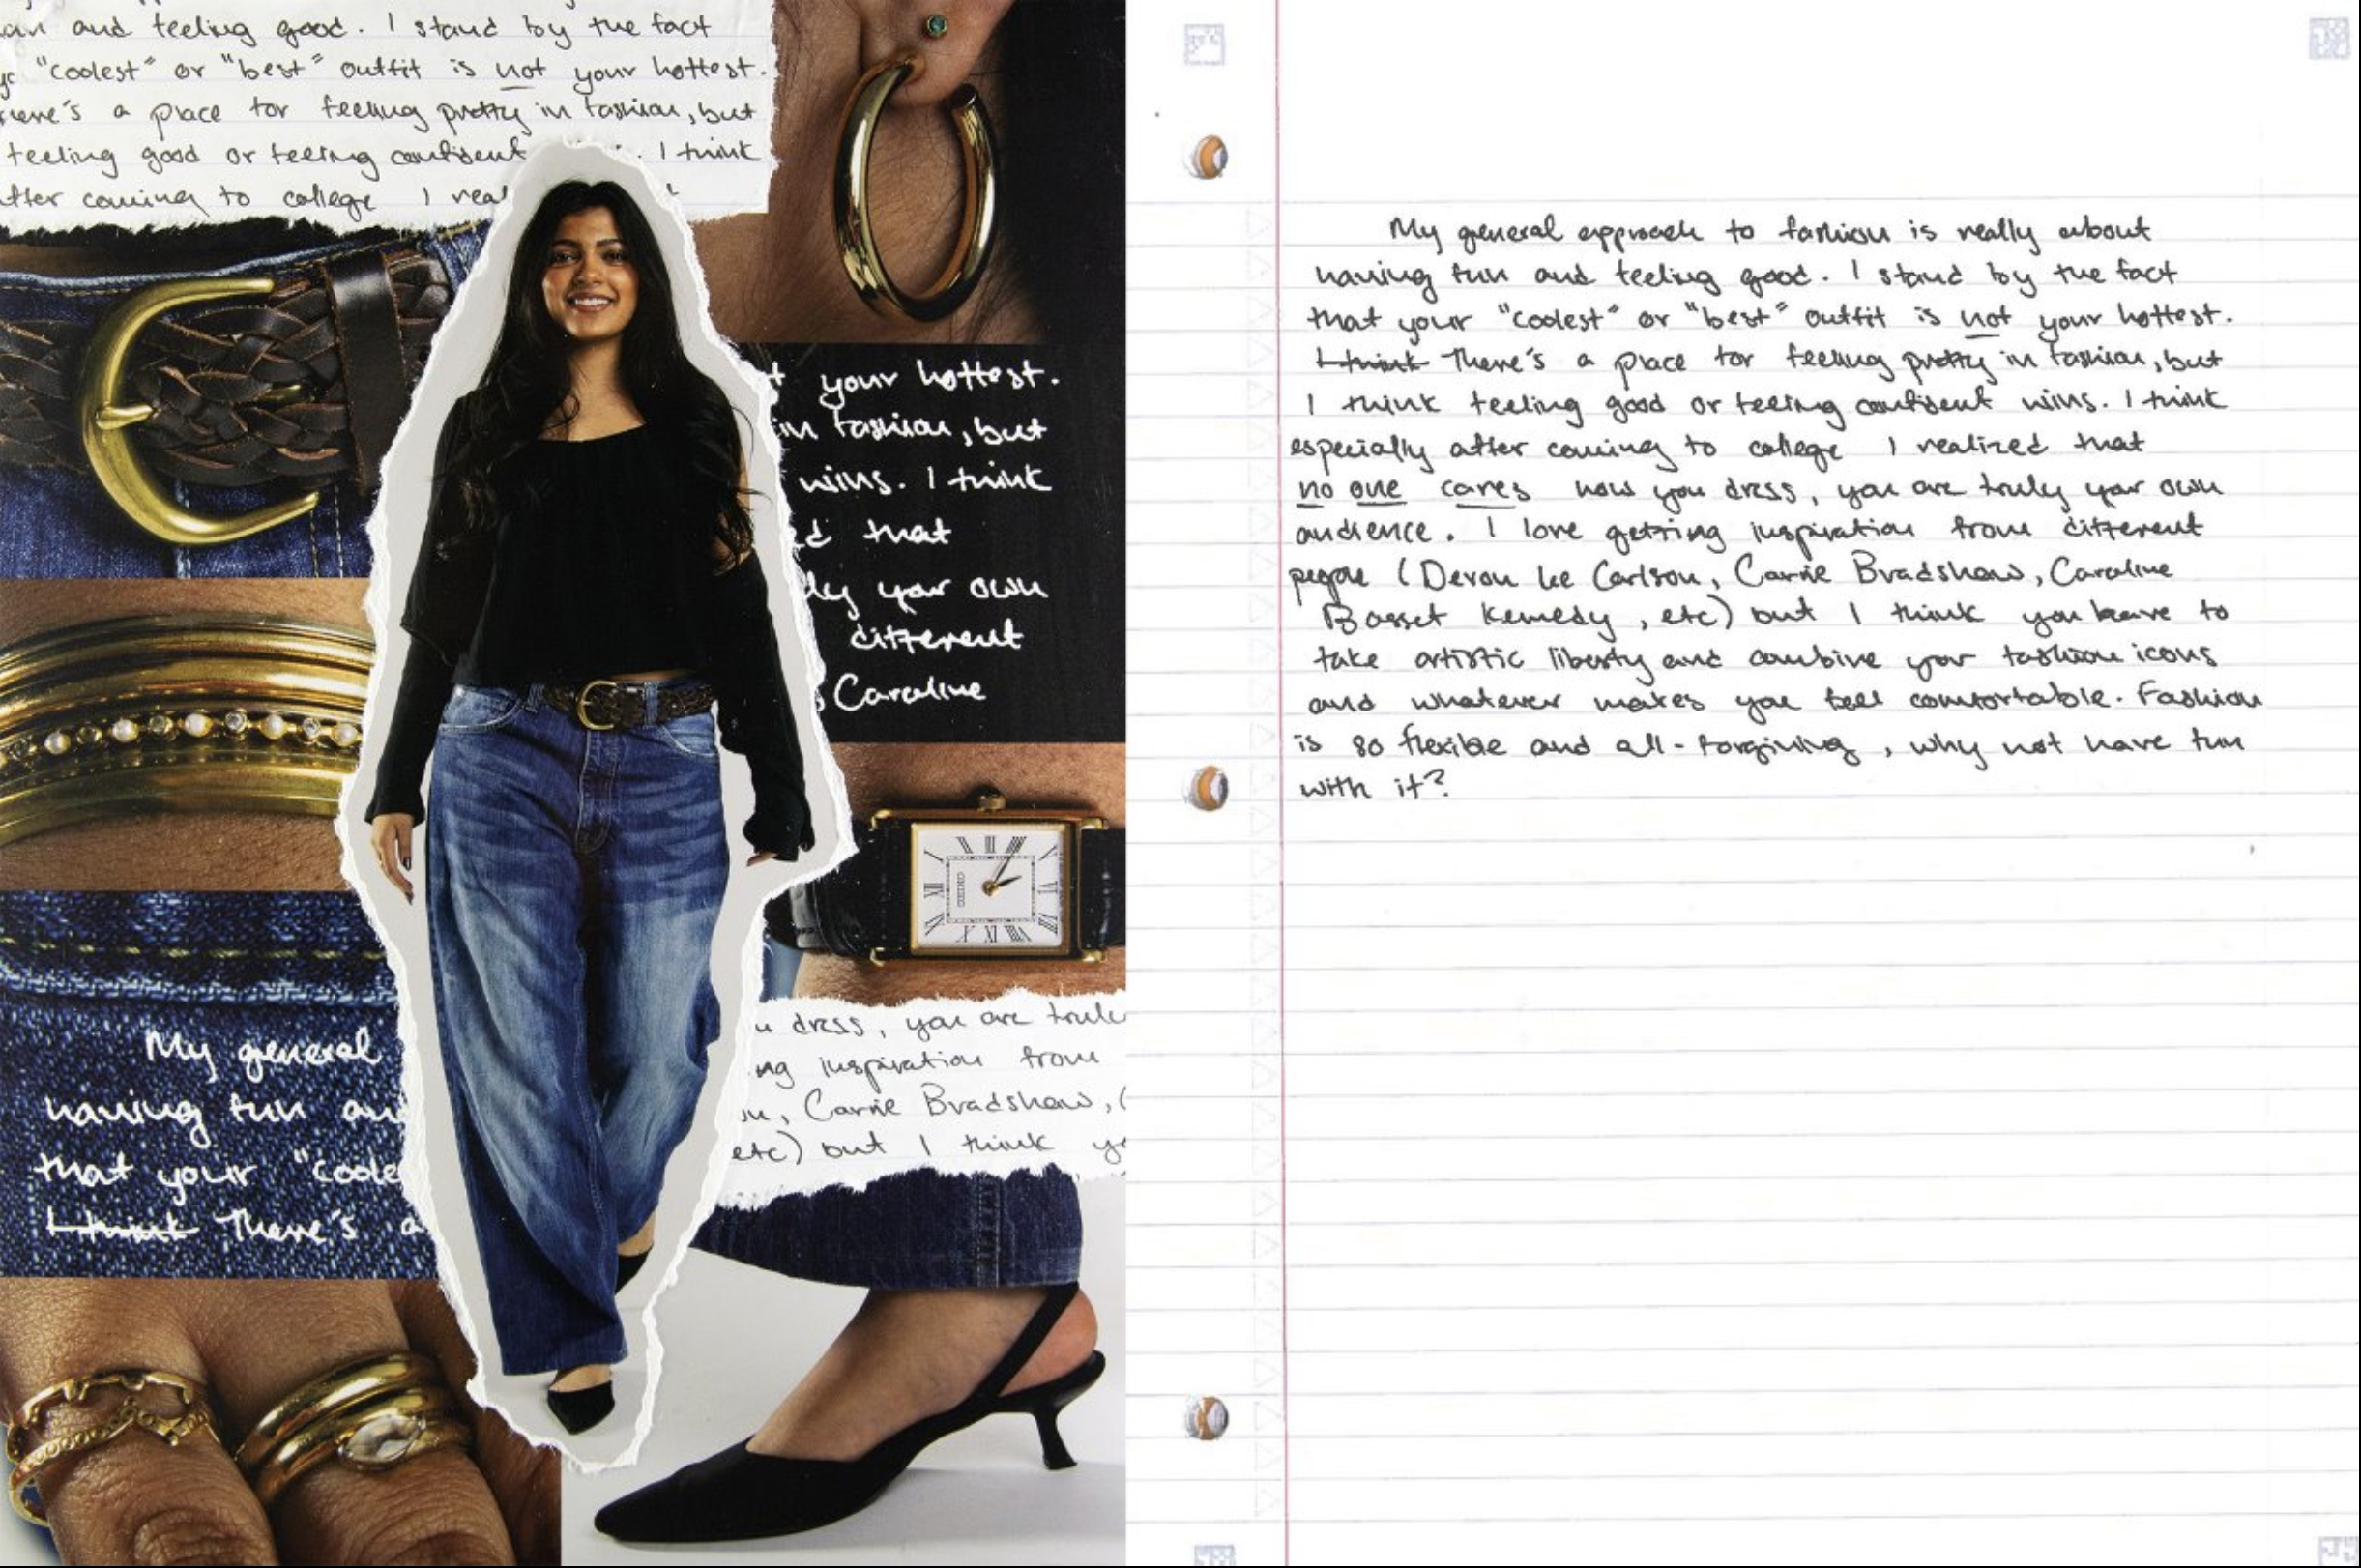 and feeling good. I stand by the fact
"coolest" or "best" outfit is not your hottest.
There's a place for feeling pretty in fashion, but
feeling good or feeling confident I think
after coming to college I real
t your hottest.
in fashion, but
wins. I think
ed that
your own
different
Caroline
SEIKO
My general
having fun
that your "coole
I think There's a
dress, you are truly
ng inspiration from
Carrie Bradshaw, (
etc) but I think
My general approach to fashion is really about
having fun and feeling good. I stand by the fact
that your "coolest" or "best" outfit is not your hottest.
I think There's a place for feeling pretty in fashion, but
I think feeling good or feeling confident wins. I think
especially after coming to college I realized that
no one cares how you dress, you are truly your own
audience. I love getting inspiration from different
people (Devon Lee Carlson, Carrie Bradshaw, Caroline
Basset Kennedy, etc) but I think you have to
take artistic liberty and combine your fashion icons
and whatever makes you feel comfortable. Fashion
is so flexible and all-forgiving, why not have fun
with it?